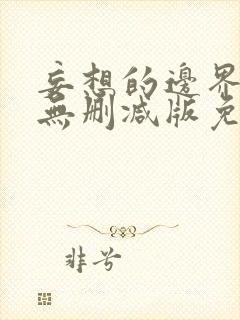 妄想的邊界
無刪減版免
非兮